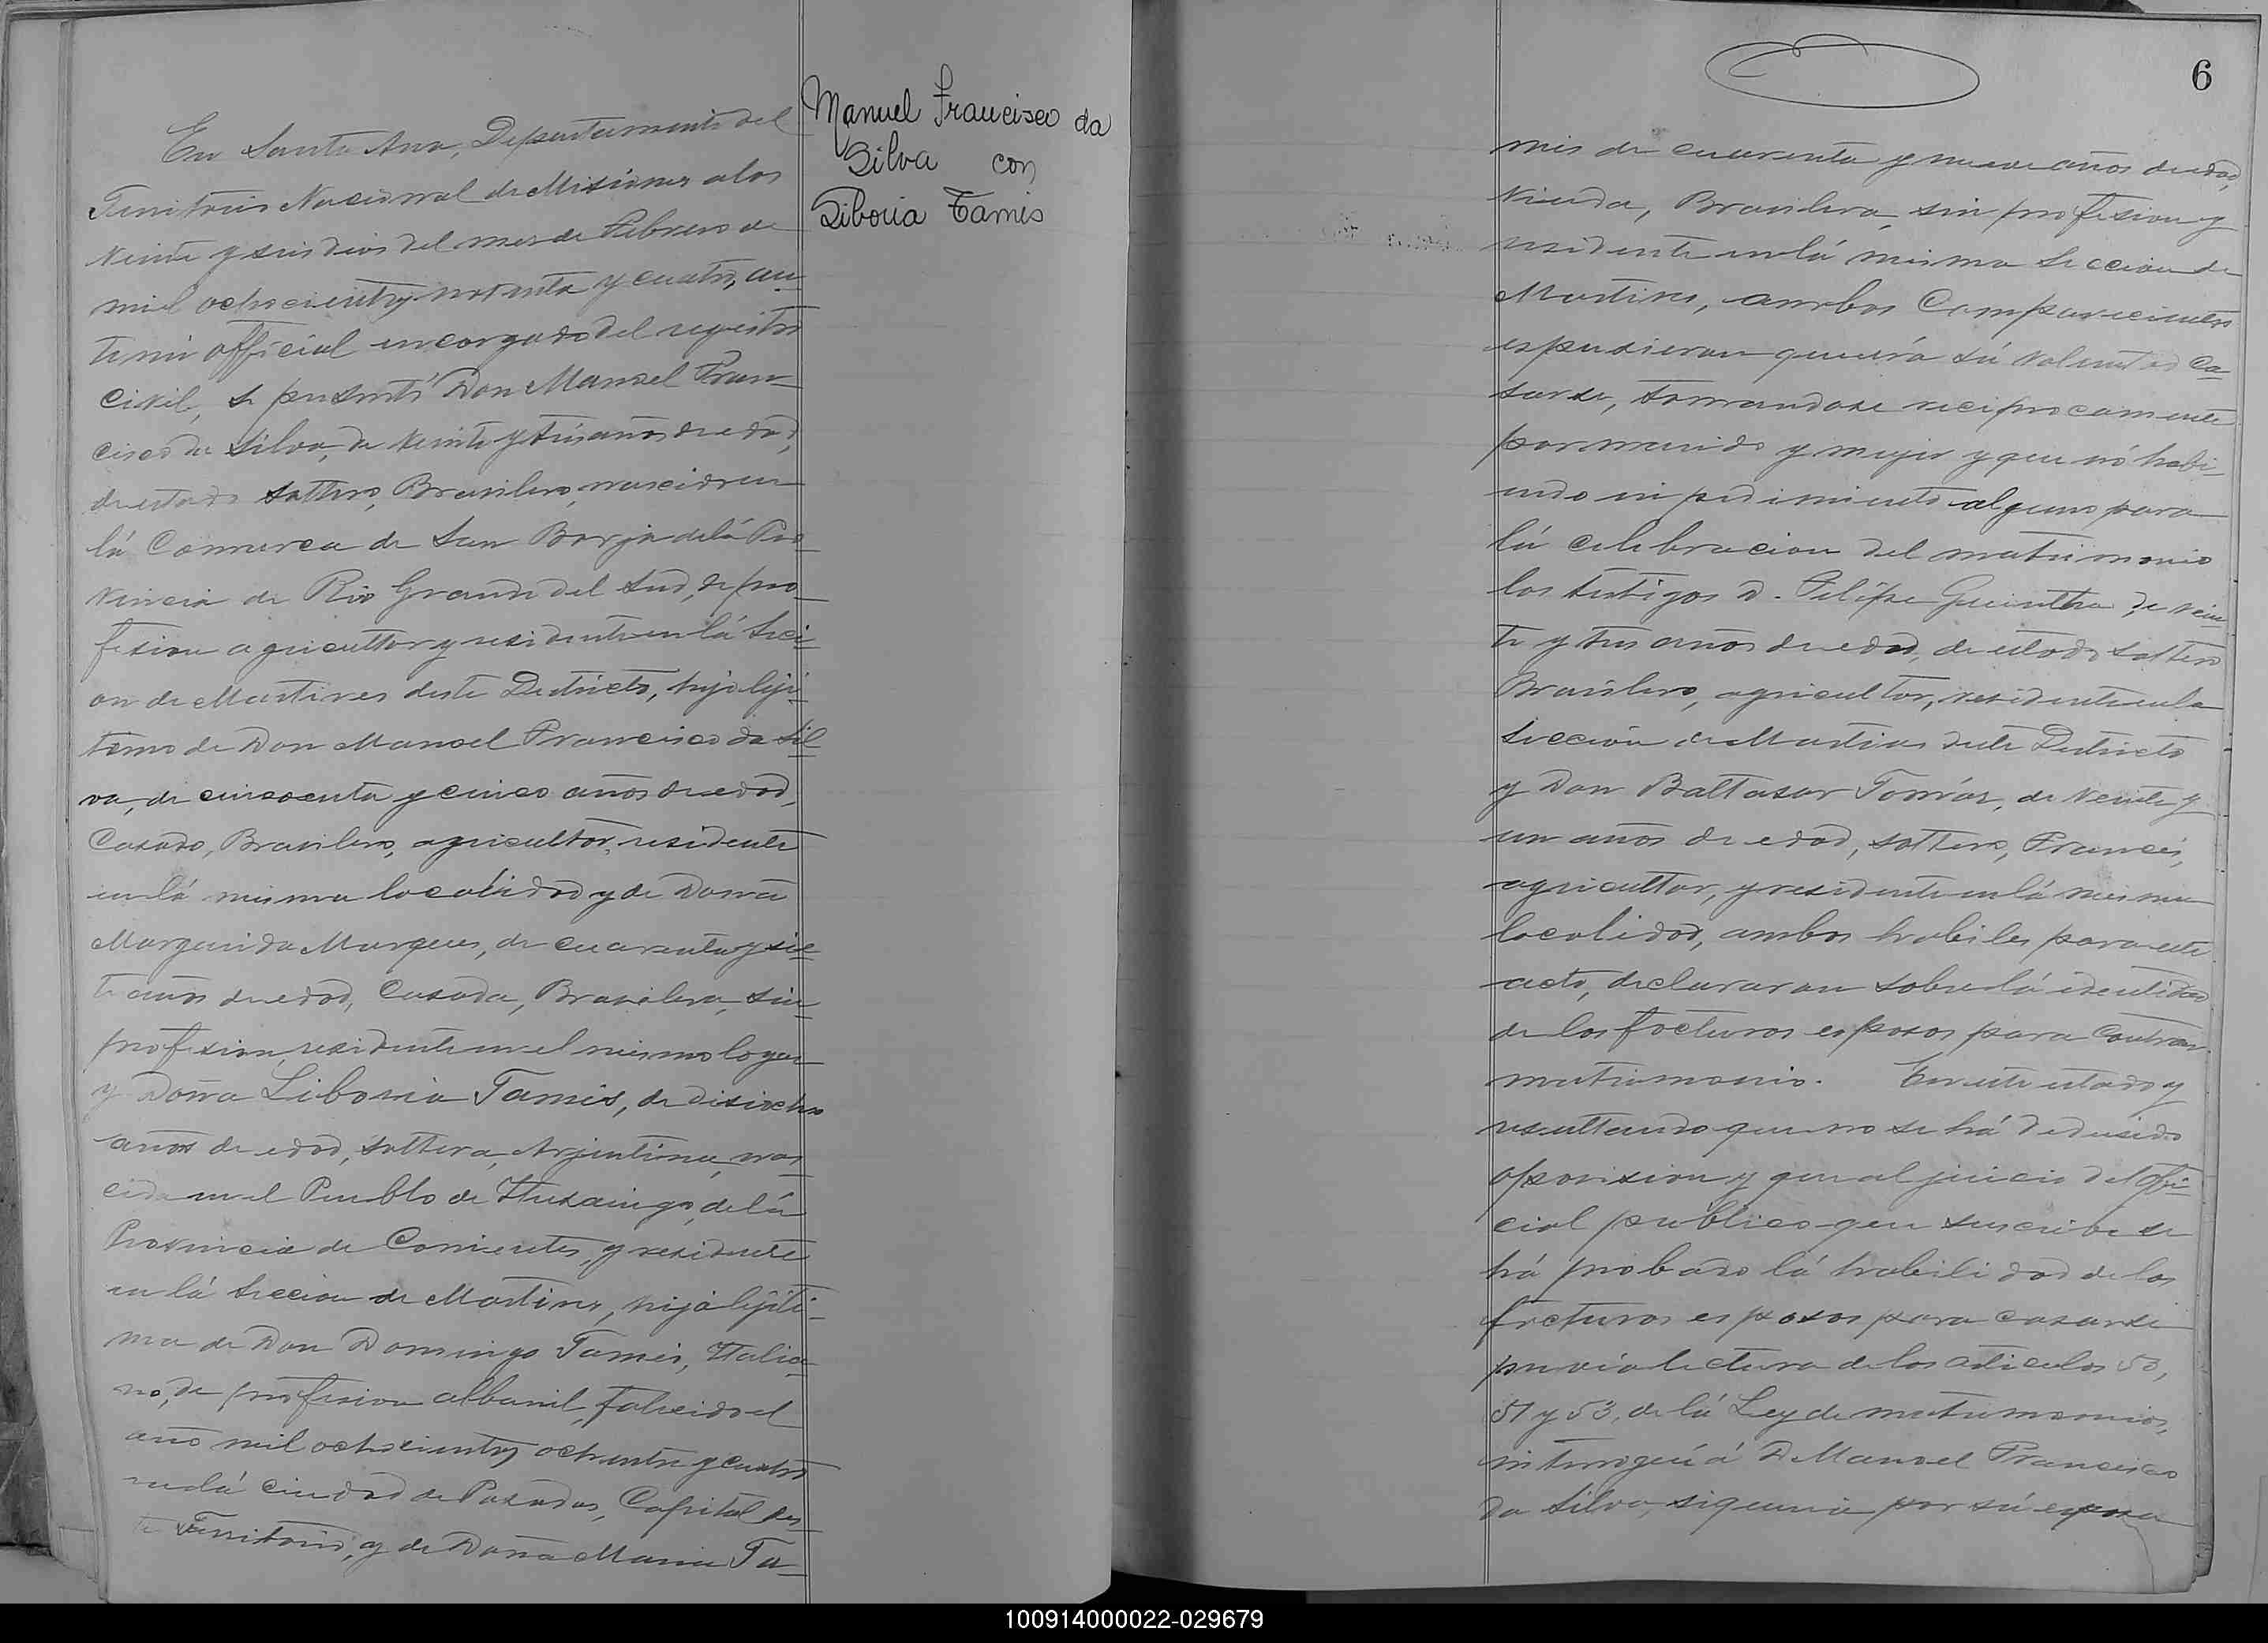 En Santa Ana, Departamento del
Territorio Nacional de Misiones a los
veinte y seis dias del mes de Febrero de
mil ochocientos noventa y cuatro, an-
te mi official encargado del registro
Civil, se presentó Don Manoel Fran-
cisco da Silva, de veinte y tres años de edad,
de estado solttero, Brasilero, nascido en
lá Comarca de San Borja de lá Pro-
vincia de Rio Grande del Sud, de pro-
fesion agricultor y residente en lá Seci-
on de Martires deste Destricto, hijo leji-
timo de Don Manoel Francisco da Sil-
va, de cincoenta y cinco años de edad,
Casado, Brasilero, agricultor, residente
en lá misma localidad y de Dona
Margarida Marques, de cuarenta y sie-
te años de edad, Casada, Brasilera, sin
profesion, residente en el mismo logar
y Dona Liboria Tamis, de disiocho
años de edad, solttera, Arjentina, nas-
cida en el Pueblo de Ituzaingo, de lá
Provincia de Corrientes, y residente
en lá Seccion de Martires, hija lejiti-
ma de Don Domingo Tamis, Italia-
no, de profesion albanil, falecido el
año mil ochocientos ochenta y cuatro
en lá ciudad de Posadas, Capital des-
te Territorio, y de Dona Maria Ta-
Manuel Francisco da
Silva con
Siboria Tamis
6
mis de cuarenta y nueve años de edad,
Viuda, Brasilera, sin profesion y
residente en lá misma Seccion de
Martires, ambos Comparecientes
espusieron que era sú voluntad Ca-
sarse, tomandose reciprocamente
por marido y mujer y que nó habi-
endo impedimiento alguno para
lá celebracion del matrimonio
los testigos D. Felipe Guinther, de vein-
te y tres años de edad, de estado solttero
Brasilero, agricultor, residente en la
Seccion de Martires deste Destricto
y Don Baltasar Tomás, de veinte y
un años de edad, solttero, Francés,
agricultor, y residente en lá misma
localidad, ambos habiles para este
acto, declararan sobre lá identidad
de los focturos esposos para Contraer
matrimonio. En este estado y
resultando que no se há dedusido
oposision y que al juicio del ofi-
cial publico que suscribe se
há probado lá habilidad de los
focturos esposos para casarse
previa lectura de los articulos 50,
51 y 53, de lá Ley de matrimonios,
interrogué á D Manoel Francisco
da Silva, si queria por sú esposa
100914000022-029679